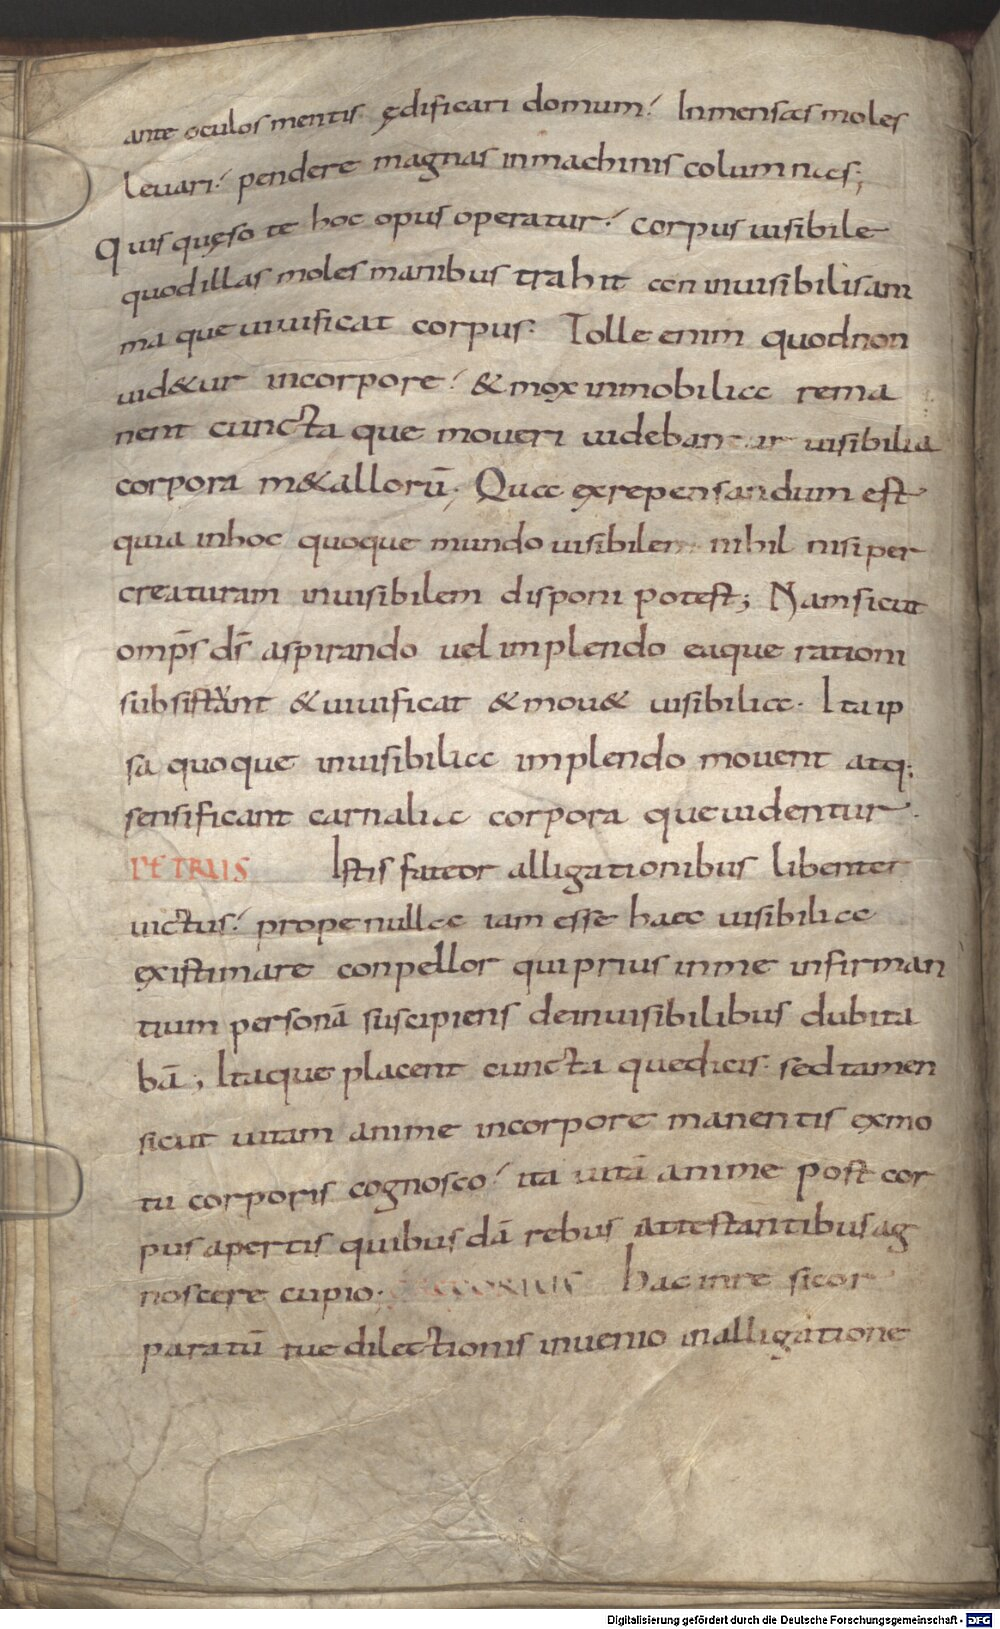 ante oculos mentis ędificari domum? Inmensas moles
leuari? pendere magnas inmachinis columnas;
Quis quęso te hoc opus operatur? corpus uisibile
quod illas moles manibus trahit an inuisibilis ani
ma que uiuificat corpus? Tolle enim quod non
uid&ur in corpore? & mox inmobilia rema
nent cuncta que moueri uidebantur uisibilia
corpora m&allorū; Qua ex re pensandum est
quia in hoc quoque mundo uisibilem nihil nisi per
creaturam inuisibilem disponi potest; Nam sicut
omp̄s d̄s aspirando uel implendo eaque rationi
subsistunt & uiuificat & mou& uisibilia. Ita ip
sa quoque inuisibilia implendo mouent atq;
sensificant carnalia corpora que uidentur.
PETRUS Istis fateor alligationibus libenter
uictus? prope nulla iam esse haec uisibilia
existimare conpellor qui prius in me infirman
tium personā suscipiens de inuisibilibus dubita
bā; Itaque placent cuncta que dicis. sed tamen
sicut uitam anime in corpore manentis ex mo
tu corporis cognosco? ita uitā anime post cor
pus apertis quibusdā rebus attestantibus ag
noscere cupio. GREGORIUS hac in re si cor
paratū tue dilectionis inuenio in alligatione
Digitalisierung gefördert durch die Deutsche Forschungsgemeinschaft - DFG